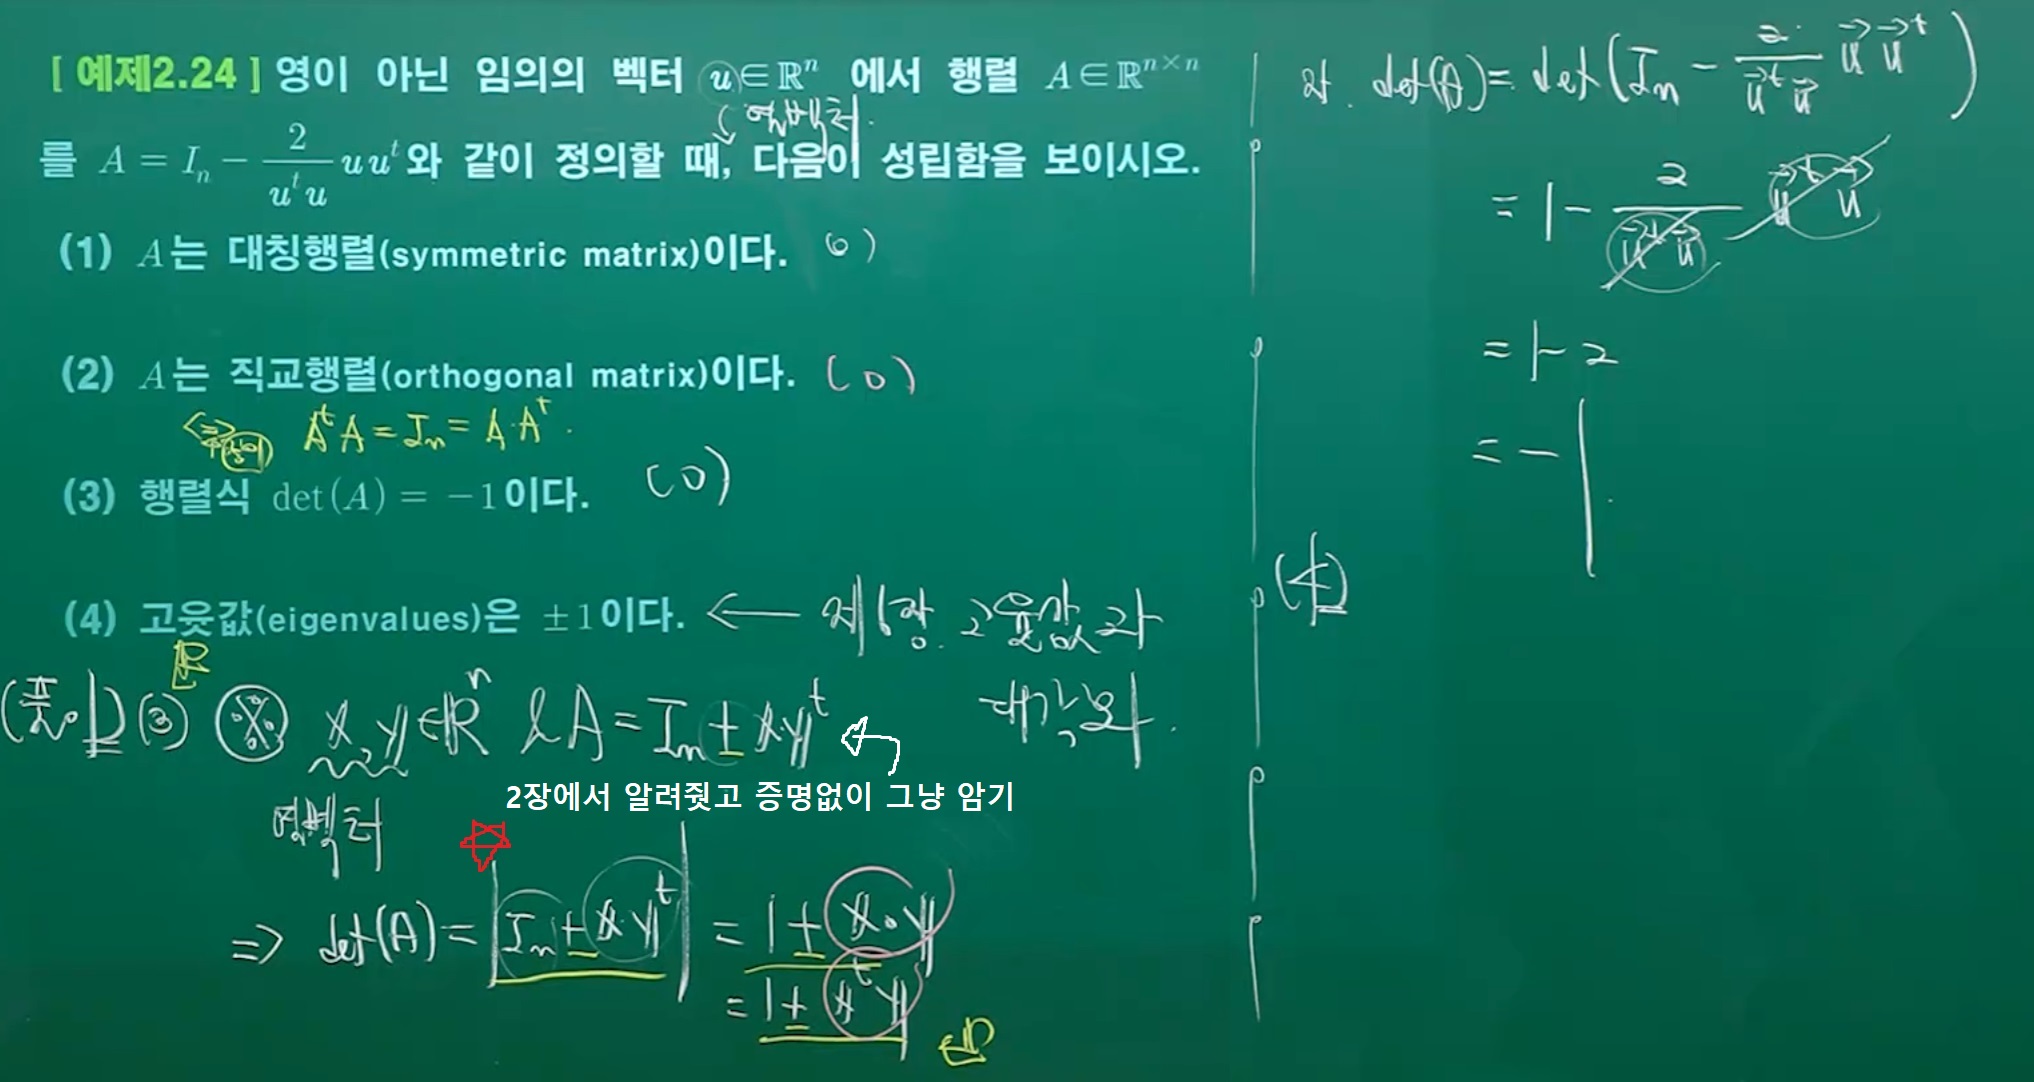 [ 예제2.24 ] 영이 아닌 임의의 벡터 u∈ℝⁿ 에서 행렬 A∈ℝⁿˣⁿ
열벡터.
를 A = Iₙ − 2/(uᵗu) u uᵗ 와 같이 정의할 때, 다음이 성립함을 보이시오.
(1) A는 대칭행렬(symmetric matrix)이다. (o)
(2) A는 직교행렬(orthogonal matrix)이다. (o)
⇔ AᵗA = Iₙ = A·Aᵗ.
(3) 행렬식 det(A) = −1이다. (o)
(4) 고윳값(eigenvalues)은 ±1이다. ← 제6장. 고윳값과
대각화.
(풀이) (3) ※ x, y ∈ ℝⁿ & A = Iₙ ± x·yᵗ
2장에서 알려줫고 증명없이 그냥 암기
열벡터
⇒ det(A) = |Iₙ ± x·yᵗ| = 1 ± x·y
= 1 ± xᵗy
det(A) = det(Iₙ − 2/(uᵗu) u uᵗ)
= 1 − 2/(uᵗu) uᵗu
= 1 − 2
= −1.
(4)